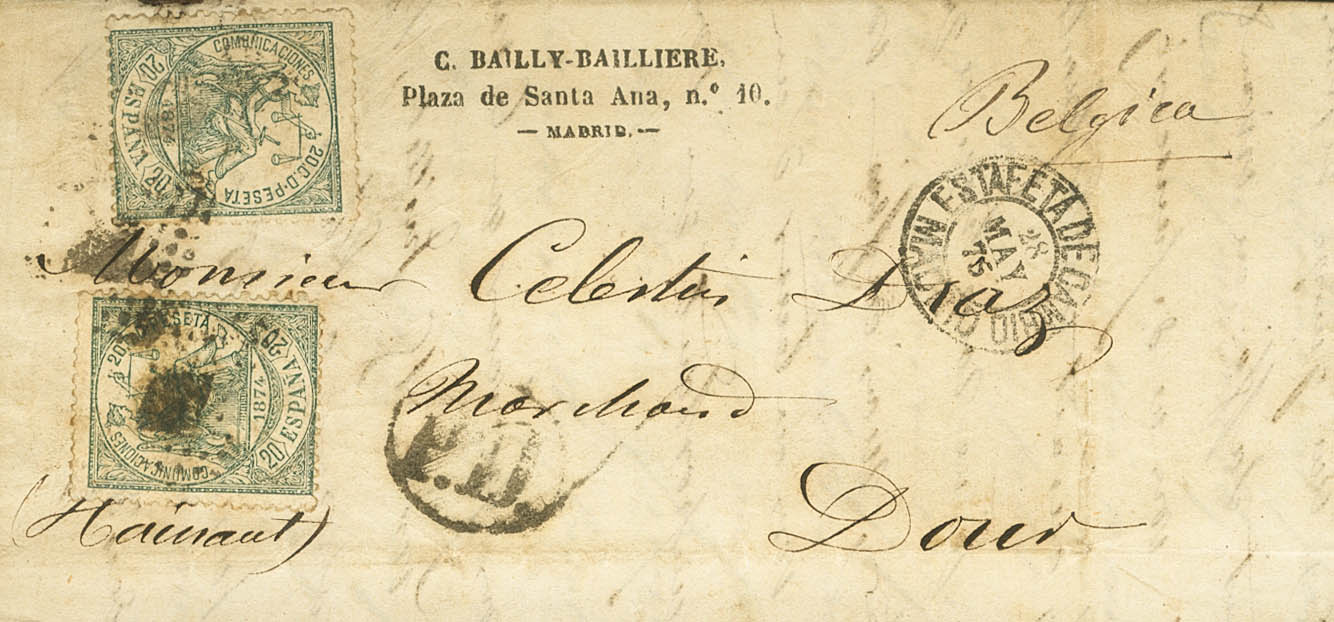 COMUNICACIONES
20 C. D. PESETA
1874
20 ESPAÑA 20
C. BAILLY-BAILLIERE,
Plaza de Santa Ana, n.º 10.
— MADRID. —
Belgica
ESTAFETA DE CAMBIO
28
MAY
75
MADRID
Monsieur Celestin
Marchand
Dour
(Hainaut)
P.D.
20 C. D. PESETA
COMUNICACIONES
1874
20 ESPAÑA 20